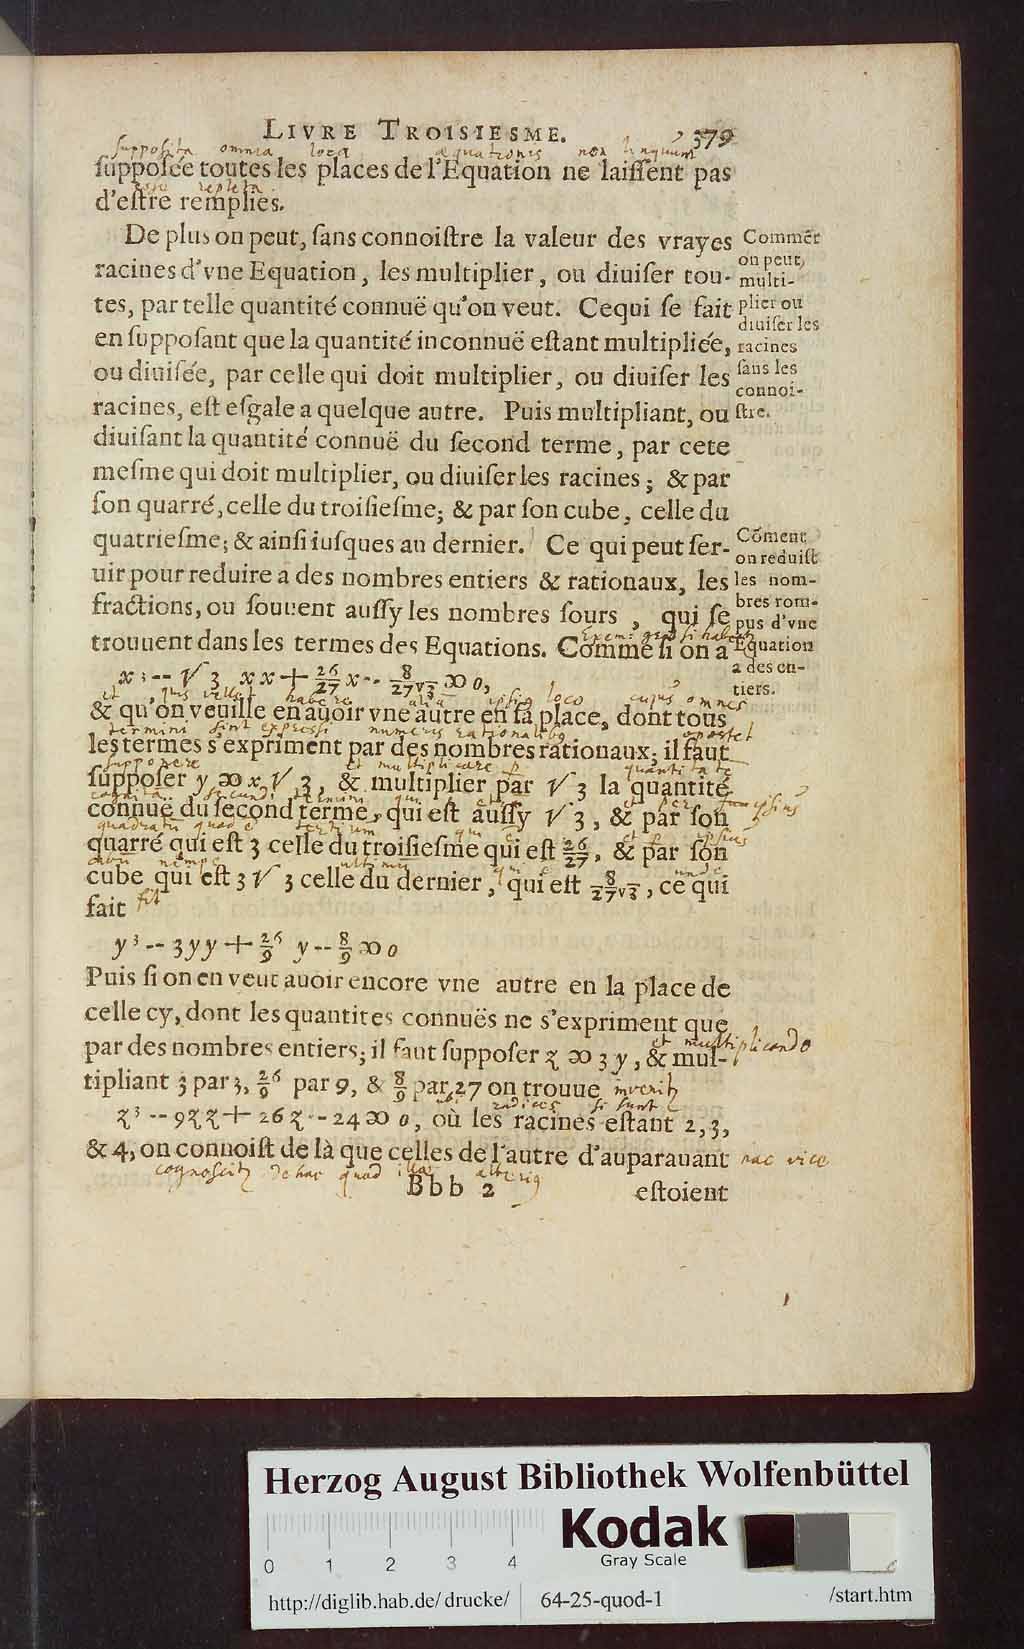 LIVRE TROISIESME. 379
supposita omnia loca aequationis non linquunt
ſuppoſée toutes les places de l'Equation ne laiſſent pas
esse repleta.
d'eſtre remplies.
De plus on peut, ſans connoiſtre la valeur des vrayes
racines d'vne Equation, les multiplier, ou diuiſer tou-
tes, par telle quantité connuë qu'on veut. Cequi ſe fait
en ſuppoſant que la quantité inconnuë eſtant multipliée,
ou diuiſée, par celle qui doit multiplier, ou diuiſer les
racines, eſt eſgale a quelque autre. Puis multipliant, ou
diuiſant la quantité connuë du ſecond terme, par cete
meſme qui doit multiplier, ou diuiſer les racines; & par
ſon quarré, celle du troiſieſme; & par ſon cube, celle du
quatrieſme; & ainſi iuſques au dernier. Ce qui peut ſer-
uir pour reduire a des nombres entiers & rationaux, les
fractions, ou ſouuent auſſy les nombres ſours, qui ſe
trouuent dans les termes des Equations. Comme ſi on a
Commēt
on peut,
multi-
plier ou
diuiſer les
racines
ſans les
connoi-
ſtre.
Cōment
on reduiſt
les nom-
bres rom-
pus d'vne
Equation
a des en-
tiers.
x³ -- √3 xx + 26/27 x -- 8/27√3 ꝏ 0,
et habere alia ipsius loco cujus omnes
& qu'on veuille en auoir vne autre en ſa place, dont tous
termini sint expressi numeris rationalibus oportet
les termes s'expriment par des nombres rationaux; il faut
supponere et multiplicare quantitatem
ſuppoſer y ꝏ x √3, & multiplier par √3 la quantité
cognita secundi termini
connuë du ſecond terme, qui eſt auſſy √3, & par ſon
tertium ipsius
quarré qui eſt 3 celle du troiſieſme qui eſt 26/9, & par ſon
nempe ultimi unde
cube qui eſt 3 √3 celle du dernier, qui eſt 8/27√3, ce qui
fait fit
y³ -- 3yy + 26/9 y -- 8/9 ꝏ 0
Puis ſi on en veut auoir encore vne autre en la place de
celle cy, dont les quantites connuës ne s'expriment que
et multiplicando
par des nombres entiers; il faut ſuppoſer z ꝏ 3 y, & mul-
tipliant 3 par 3, 26/9 par 9, & 8/9 par 27 on trouue
radices si sunt
z³ -- 9zz + 26z -- 24 ꝏ 0, où les racines eſtant 2, 3,
& 4, on connoiſt de là que celles de l'autre d'auparauant hac vice
de hac quod illas
Bbb 2 eſtoient
Herzog August Bibliothek Wolfenbüttel
Kodak
Gray Scale
0 1 2 3 4
http://diglib.hab.de/drucke/ 64-25-quod-1 /start.htm